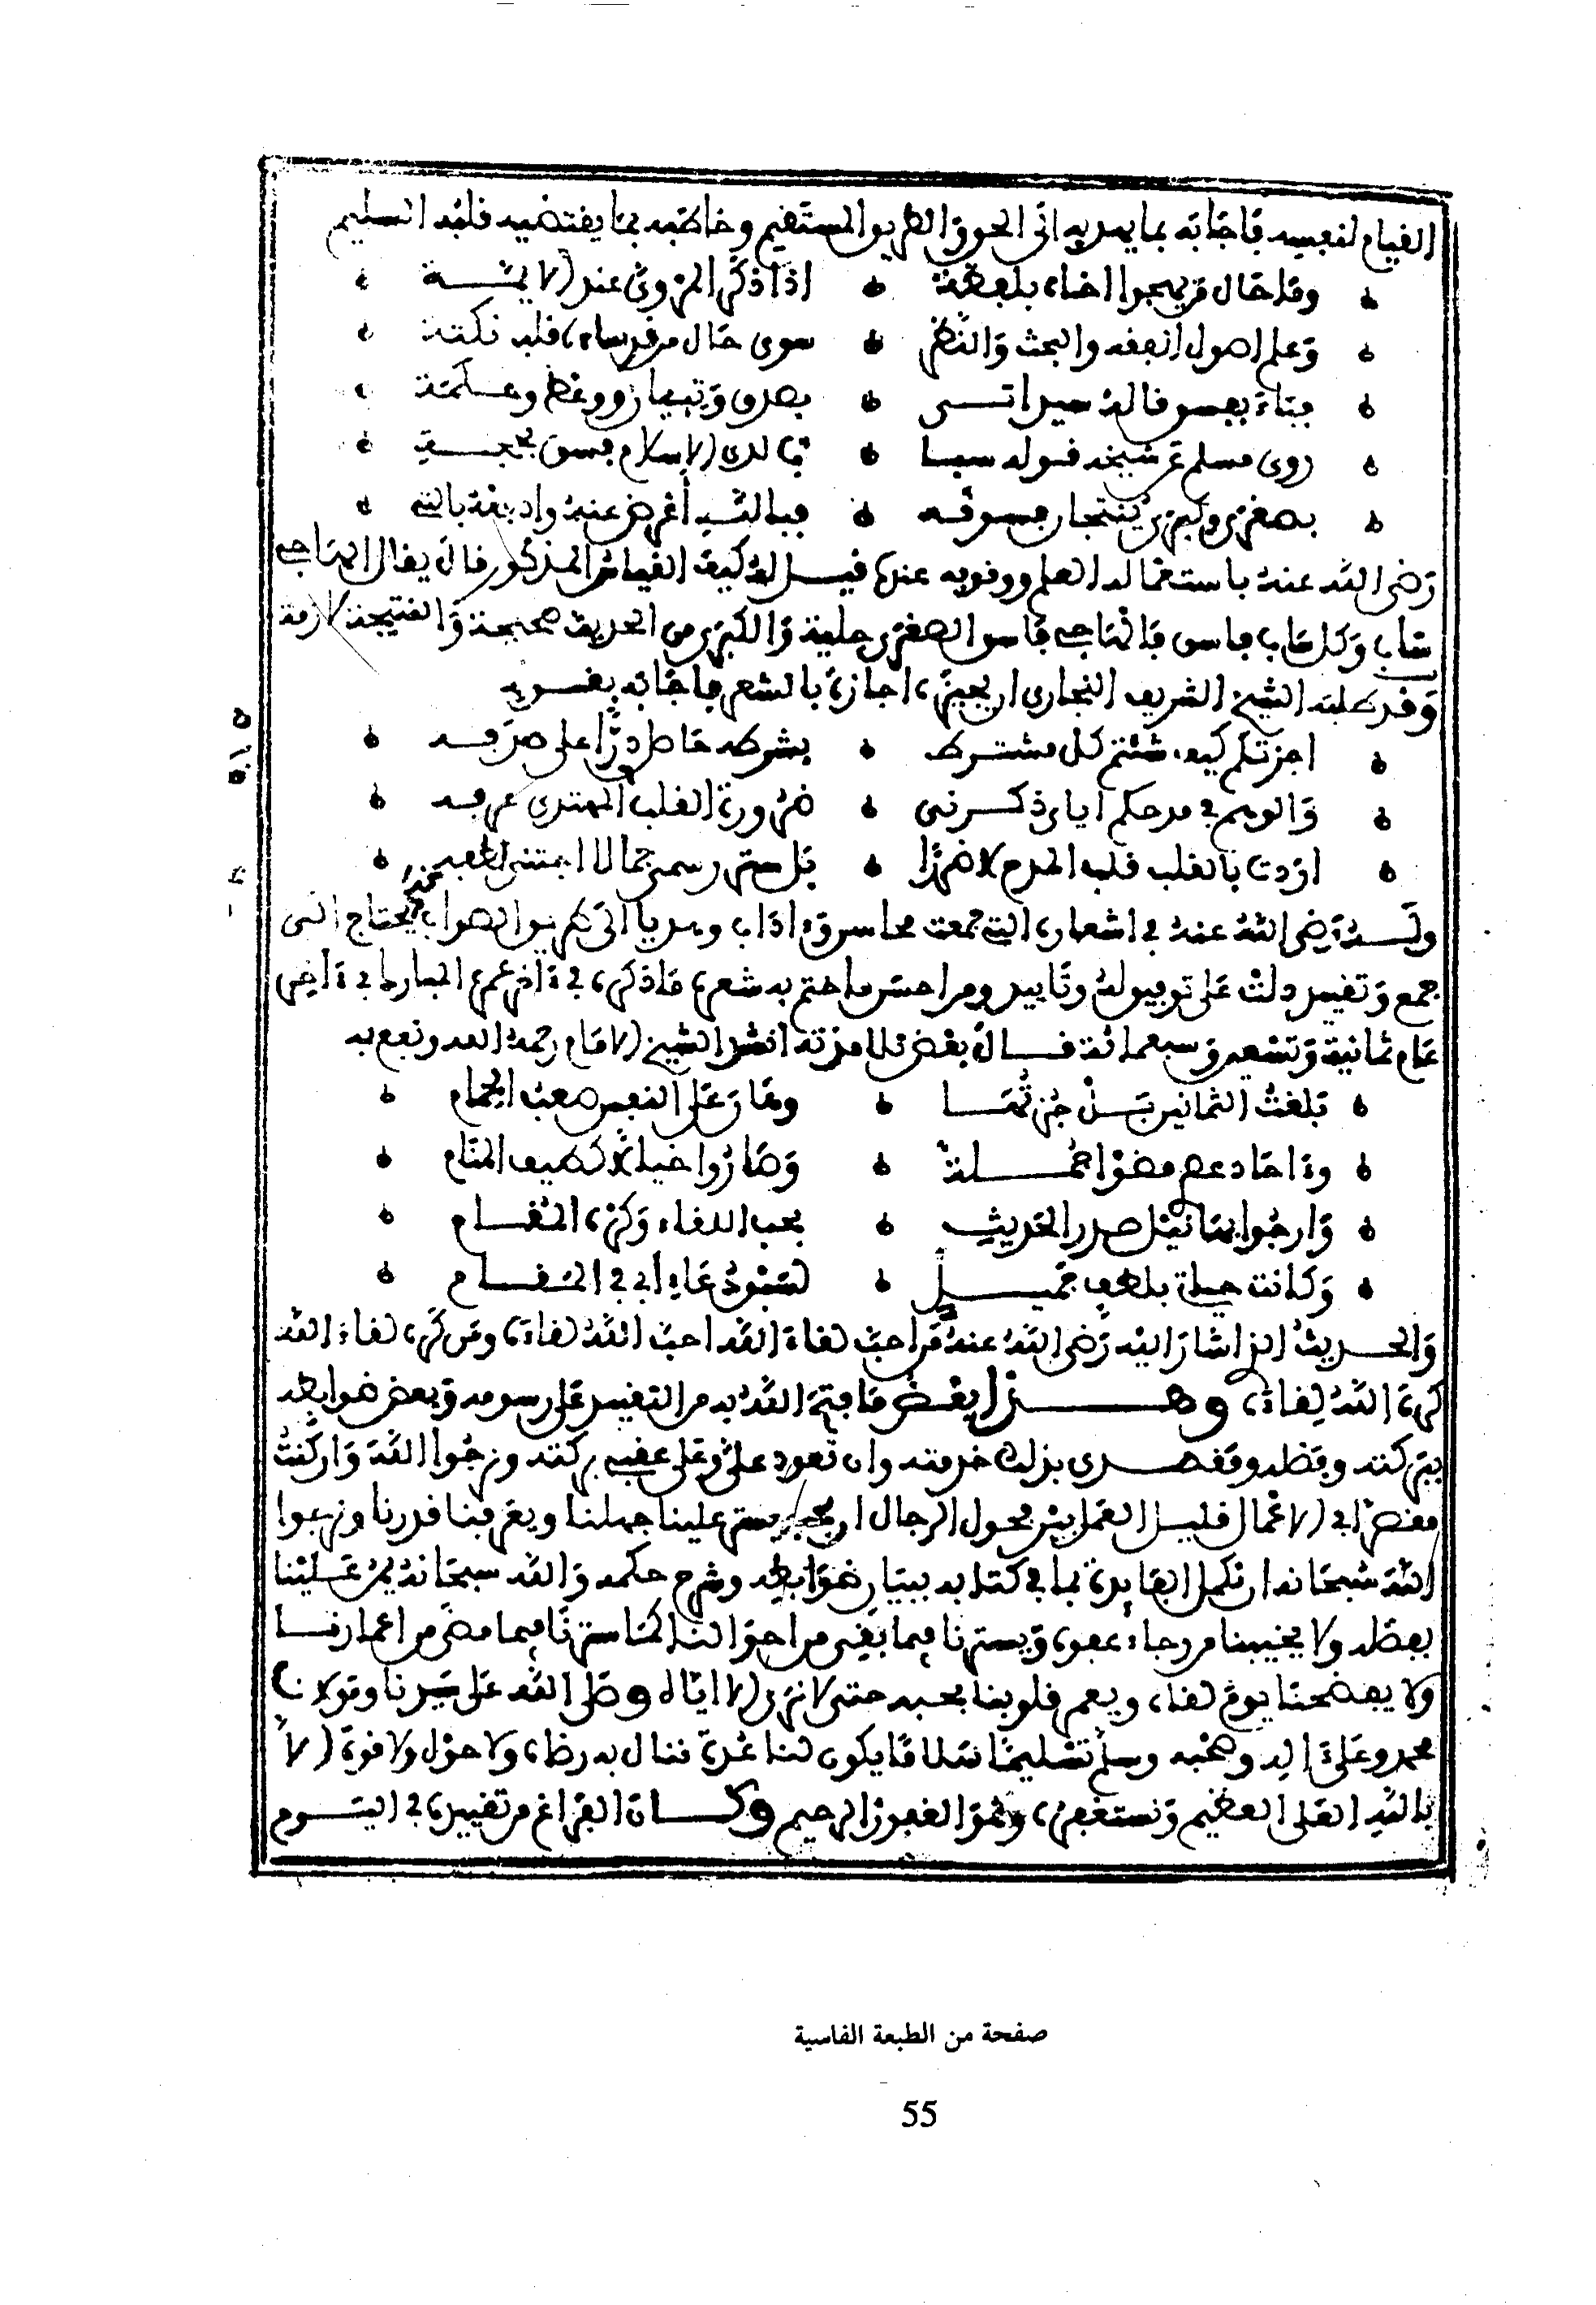 القيام لنفسه فأجابه بما يهديه إلى الحق والطريق المستقيم وخاطبه بما يقتضيه قلبه السليم
وما حال من يهجوا أخاه بلفظة إذا ذكر المروي عند الأئمة
وعلم أصول الفقه والبحث والنظر سوى حال من في قلبه نكتة
بصدق وتبيان ووعظ وحكمة
روى مسلم عن شيخه قوله سبا لدى الإسلام فسق بحجة
بصغرى وكبرى ينتجان فسوقه فبالله أعرض عنه وادفعه بالتي
رضي الله عنه باستعماله العلم ووقوفه عنده قيل له كيف القياس المذكور قال يقال الهاجي
ساب وكل ساب فاسق فالهاجي فاسق الصغرى جلية والكبرى من الحديث صحيحة والنتيجة لازمة
وقد طلبه الشيخ الشريف التجاري أن يجيزه إجازة بالشعر فأجابه بقوله
أجزتكم كيف شئتم كل مشترط بشرطه
والوهم في مدحكم إياي ذكرني ضرورة القلب
أردت بالقلب قلب المدح لا ضررا بل ستر رسمي
وله رضي الله عنه في أشعاره التي جمعت محاسن وآداب وهديا إلى طريق الصواب يحتاج إلى
جمع وتقييد دلت على توفيق له وتأييد ومن أحسن ما ختم به شعره ما ذكره في آخر عمره المبارك في آخر
عام ثمانية وتسعين وسبعمائة قال بعض تلامذته أنشد الشيخ الإمام رحمه الله ونفع به
بلغت الثمانين بل جزتها وهان على النفس صعب الحمام
وآحاد عصر مضوا جملة وصاروا خيالا كطيف المنام
وأرجوا بها نيل صدر الحديث بحب اللقاء وكره المقام
وكانت حياة بلطف جميل لسبق دعاء أبي في المقام
والحديث الذي أشار إليه رضي الله عنه من أحب لقاء الله أحب الله لقاءه ومن كره لقاء الله
كره الله لقاءه وهذا بعض ما فتح الله به من التقييد على رسومه وبعض ضوابطه
ببركته وفضله ومقصدي بذلك خدمته وأن تعود علي وعلى عقبي بركته ونرجوا الله وإن كنت
مقصرا في الأعمال قليل العمل بين فحول الرجال أن يستر علينا جهلنا ويعرفنا قدرنا ونرغبوا
الله سبحانه أن تكمل الفايدة بما في كتابه ببيان ضوابطه وشرح حكمه والله سبحانه يمن علينا
بفضله ولا يخيبنا من رجاء عفوه ويسترنا فيما بقي من أحوالنا كما سترنا فيما مضى من أعمارنا
ولا يفضحنا يوم لقاه ويعمر قلوبنا بحبه حتى لا نرى إلا إياه وصلى الله على سيدنا ومولانا
محمد وعلى آله وصحبه وسلم تسليما سلاما يكون لنا عدة ننال به رضاه ولا حول ولا قوة إلا
بالله العلي العظيم ونستغفره وهو الغفور الرحيم وكان الفراغ من تقييده في اليوم
صفحة من الطبعة الفاسية
55